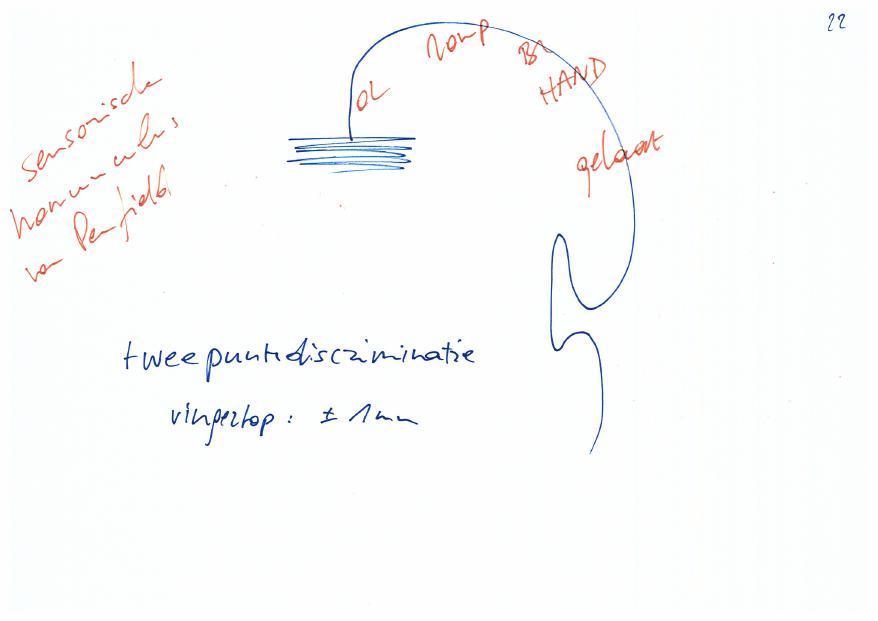 22
sensorische
homunculus
van Penfield
OL
romp
BL
HAND
gelaat
tweepuntsdiscriminatie
vingertop: ± 1mm